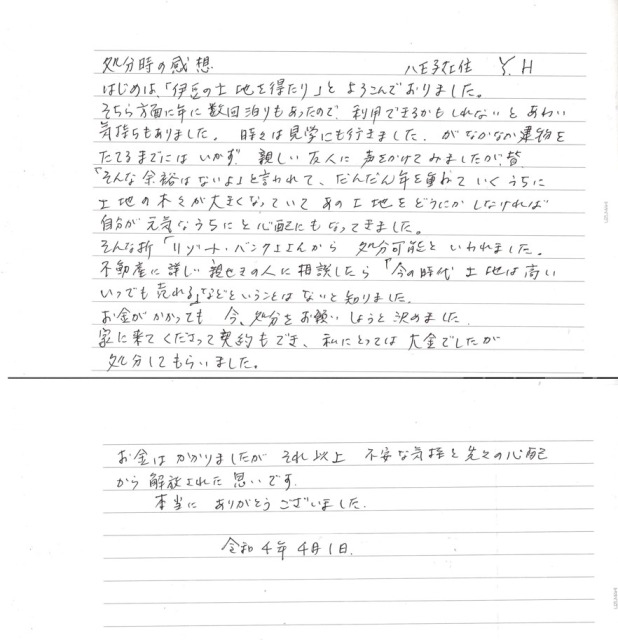 処分時の感想 八王子在住 Y.H
はじめは、「伊豆の土地を得たり」とよろこんでおりました。
そちら方面に年に数回泊りもあったので、利用できるかもしれないとあわい
気持ちもありました。 時々は見学にも行きました。がなかなか建物を
たてるまでにはいかず、親しい友人に声をかけてみましたが、皆
「そんな余裕はないよ」と言われて、だんだん年を重ねていくうちに
土地の木々が大きくなっていてあの土地をどうにかしなければ
自分が元気なうちにと心配にもなってきました。
そんな折「リゾート・バンク」さんから 処分可能といわれました。
不動産に詳しい親せきの人に相談したら「今の時代土地は高い
いつでも売れる」などということはないと知りました。
お金がかかっても 今、処分をお願いしようと決めました。
家に来てくださって契約もでき、私にとっては 大金でしたが
処分してもらいました。
お金はかかりましたが それ以上 不安な気持と先々の心配
から解放された思いです。
本当に ありがとうございました。
令和4年4月1日.